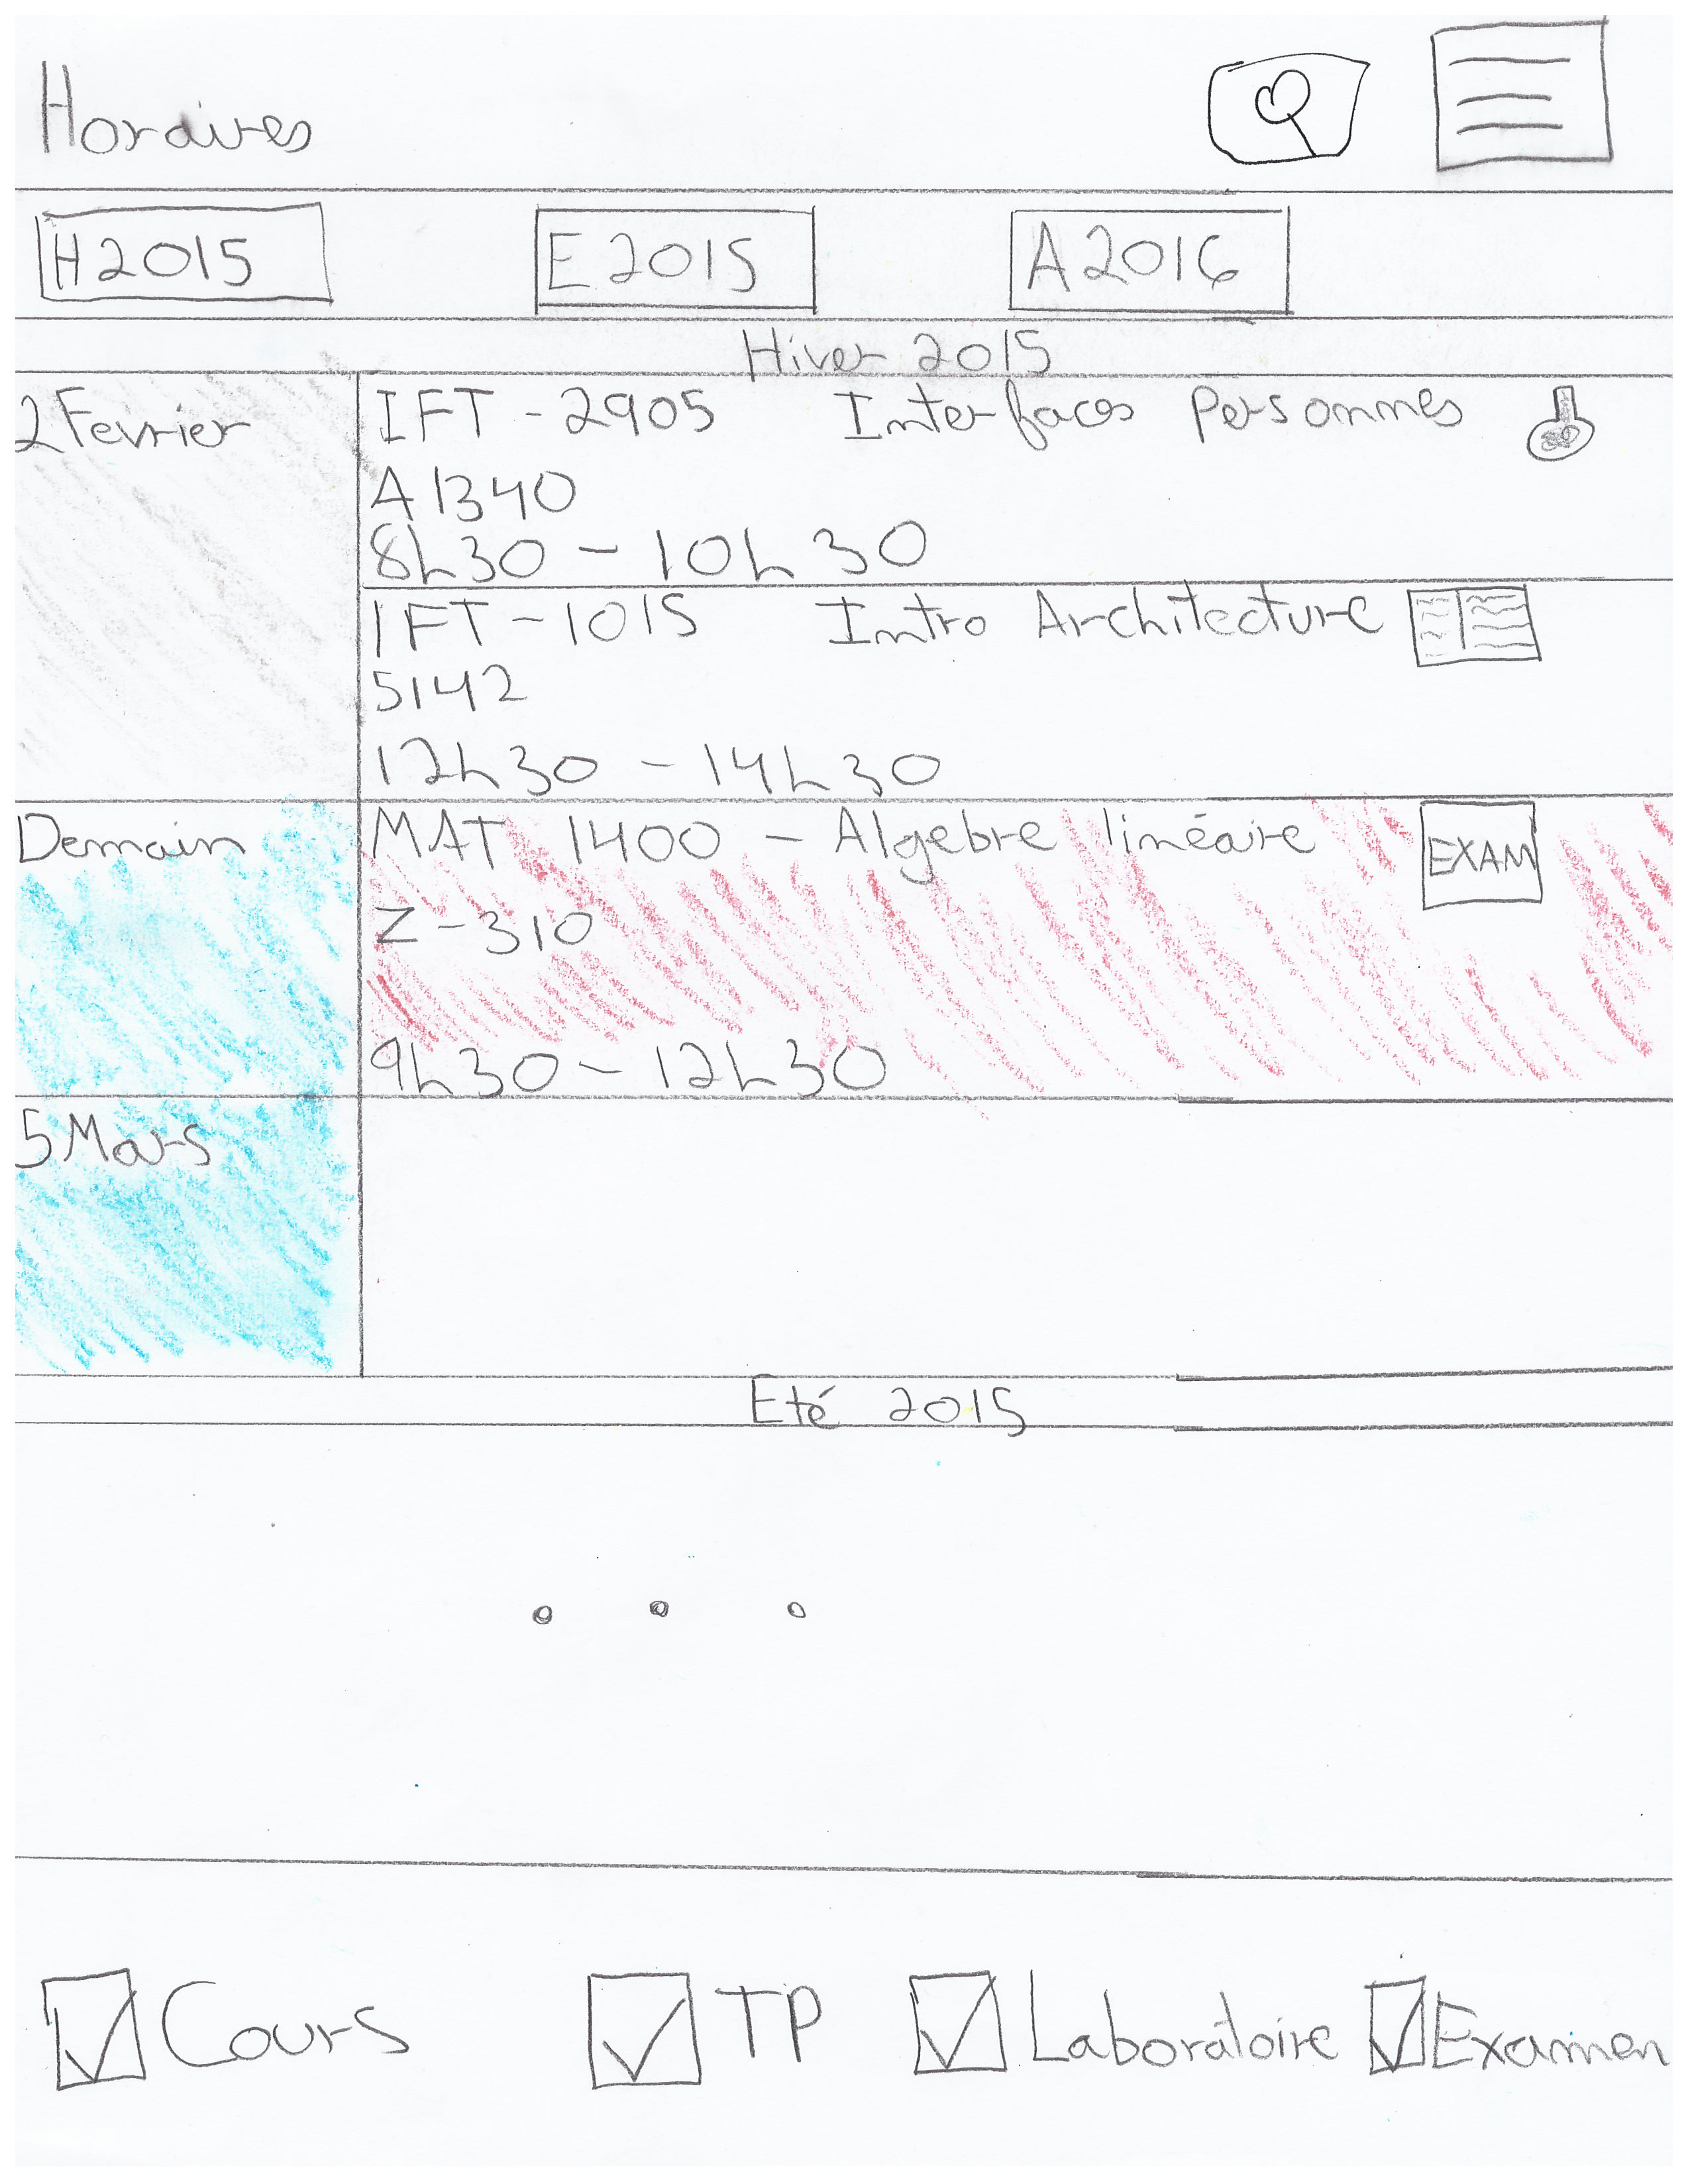 Horaires
H2015 E2015 A2016
Hiver 2015
2 Fevrier
IFT-2905 Interfaces Personnes
A1340
8h30 - 10h30
IFT-1015 Intro Architecture
5142
12h30 - 14h30
Demain
MAT 1400 - Algebre linéaire
EXAM
Z-310
9h30 - 12h30
5 Mars
Eté 2015
Cours TP Laboratoire Examen